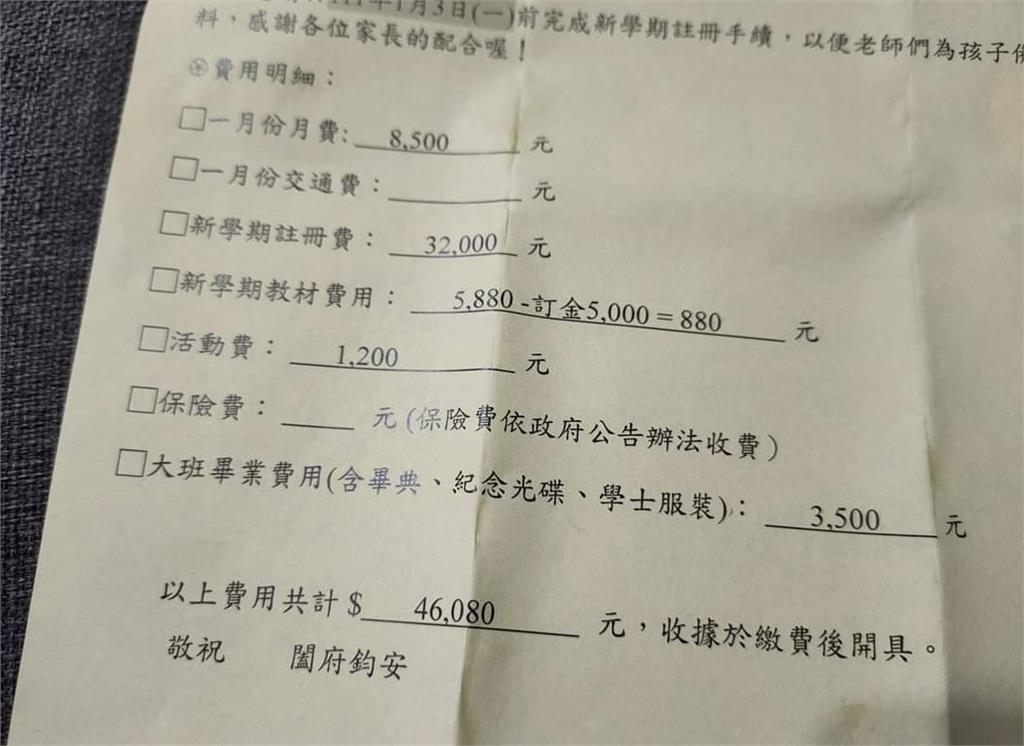 111年1月3日(一)前完成新學期註冊手續，以便老師們為孩子
料，感謝各位家長的配合喔！
㊉費用明細：
□一月份月費: 8,500 元
□一月份交通費： 元
□新學期註冊費： 32,000 元
□新學期教材費用： 5,880 -訂金5,000 = 880 元
□活動費： 1,200 元
□保險費： 元 (保險費依政府公告辦法收費)
□大班畢業費用(含畢典、紀念光碟、學士服裝)： 3,500 元
以上費用共計 $ 46,080 元，收據於繳費後開具。
敬祝 闔府鈞安